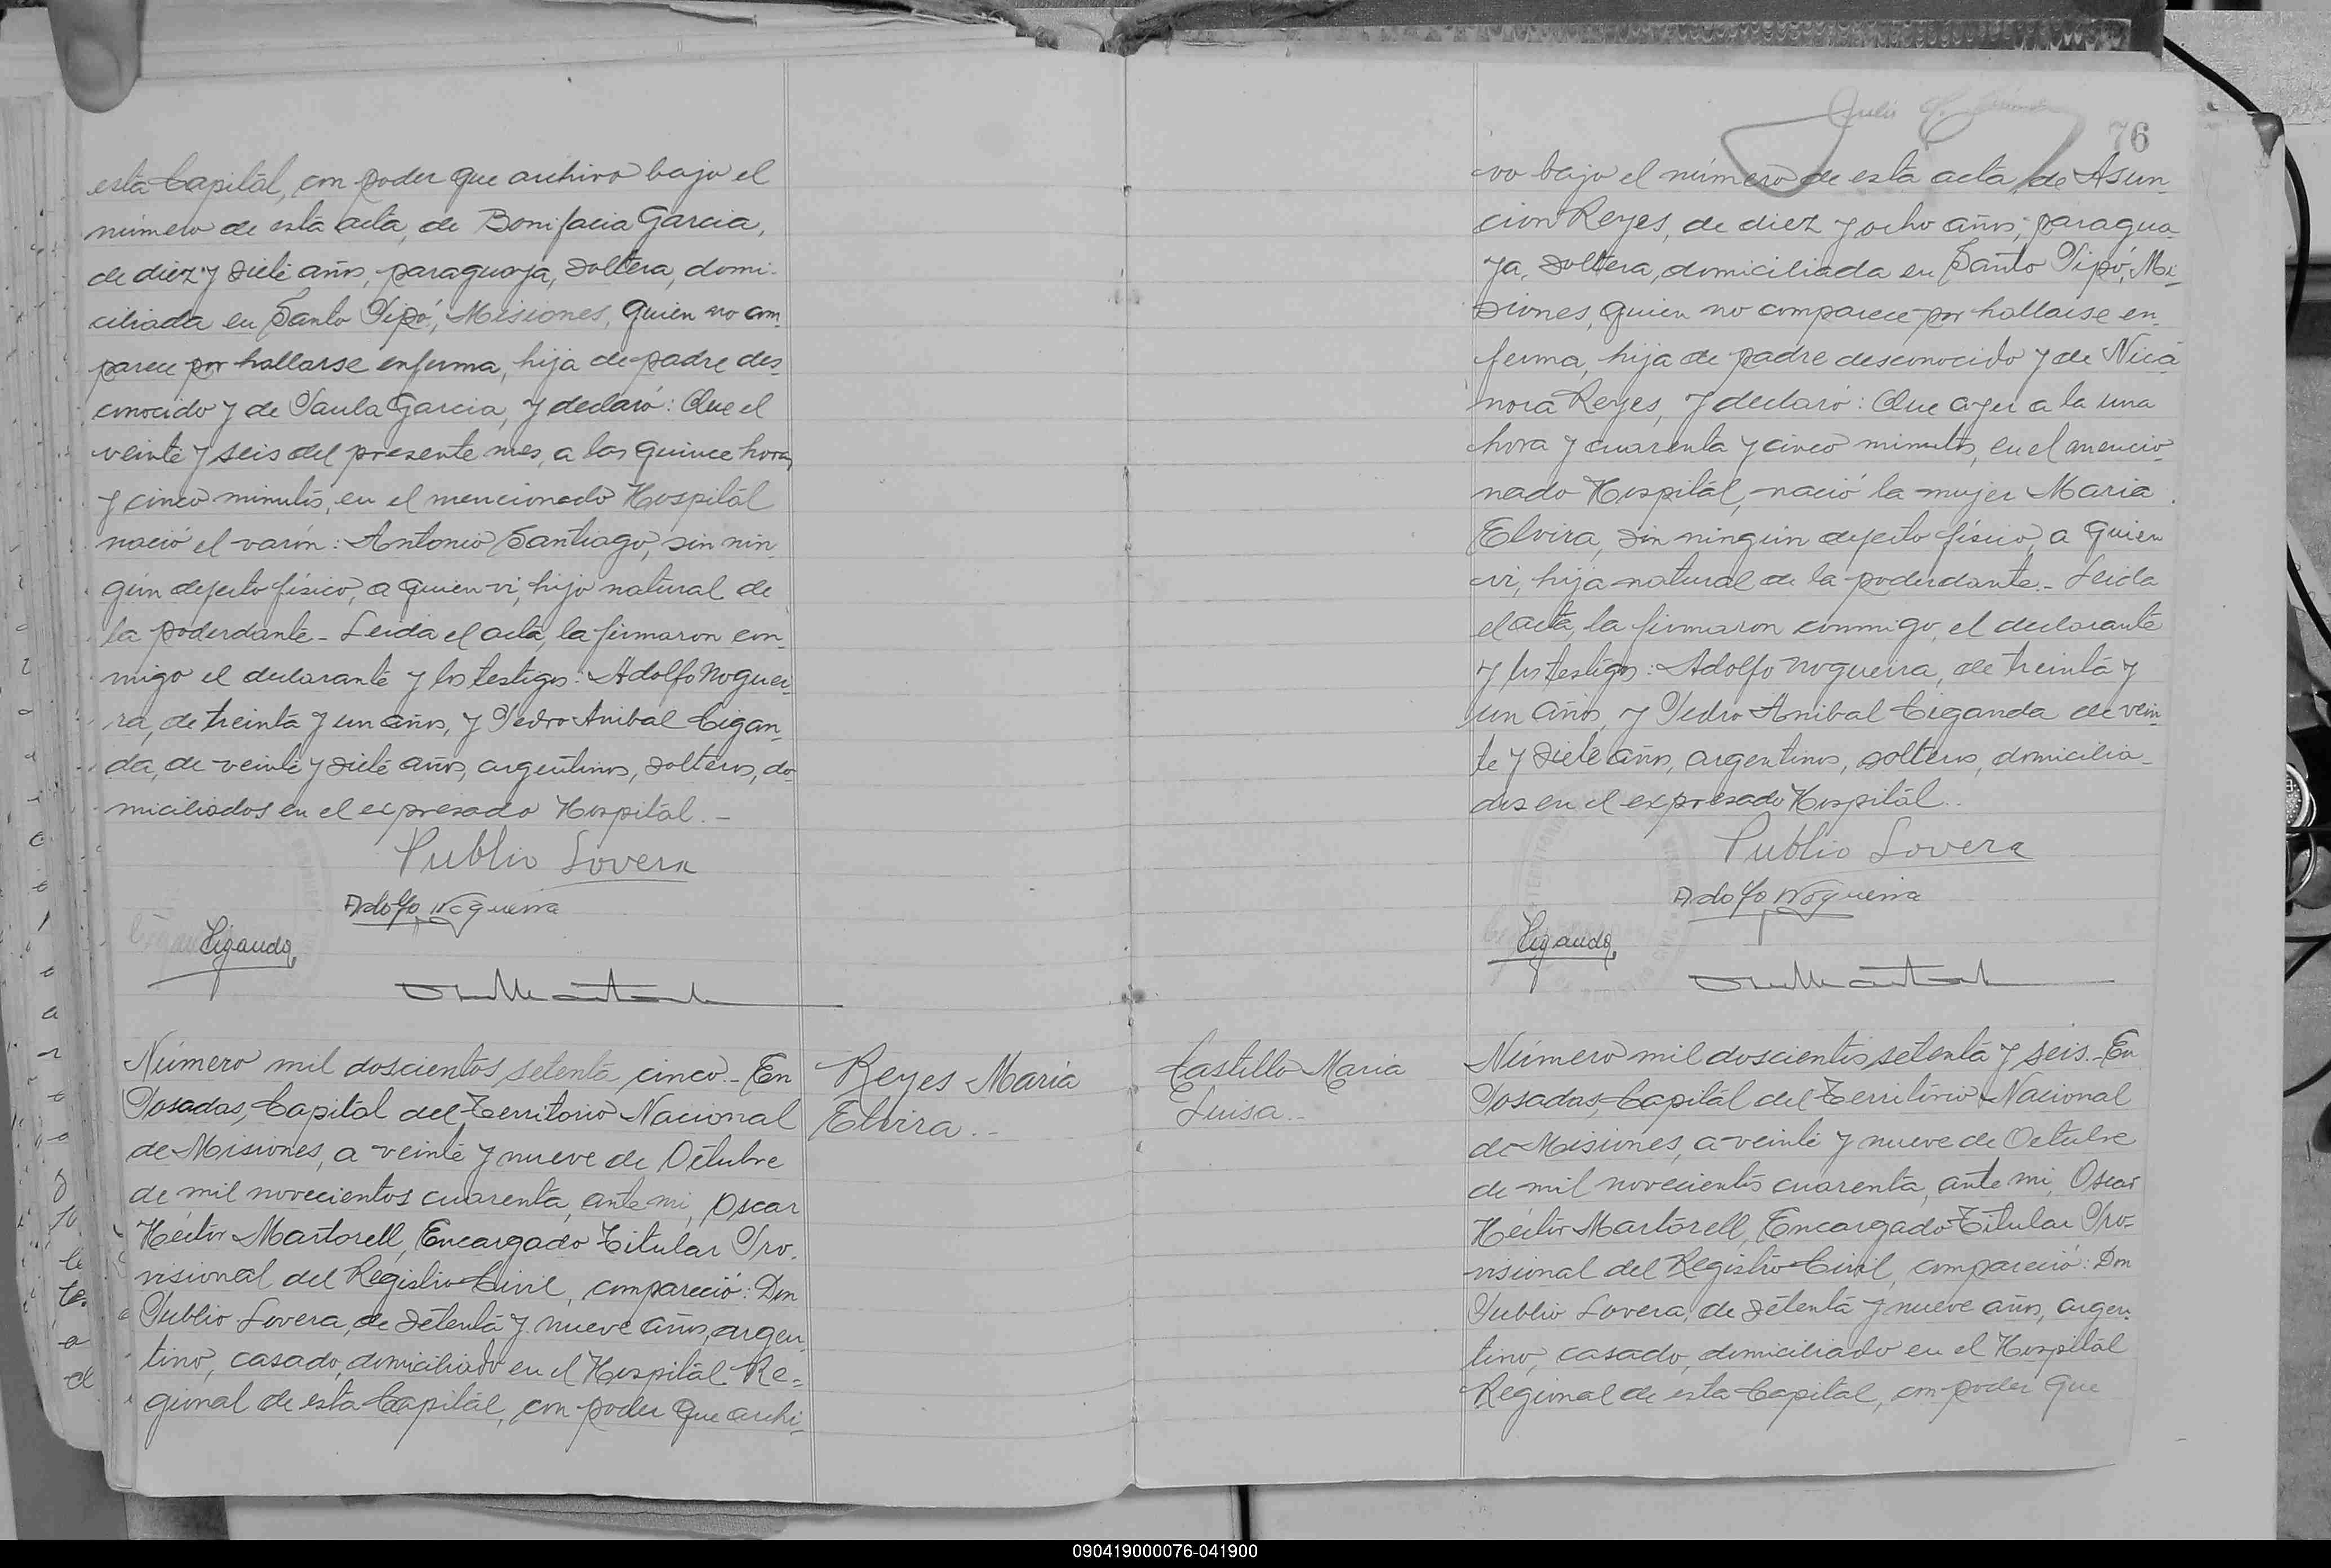 esta Capital, con poder que archivo bajo el
número de esta acta, de Bonifacia Garcia,
de diez y siete años, paraguaya, soltera, domi-
ciliada en Santo Pipó, Misiones, quien no com-
parece por hallarse enferma, hija de padre des-
conocido y de Paula Garcia, y declaró: Que el
veinte y seis del presente mes, a las quince horas
y cinco minutos, en el mencionado Hospital
nació el varón: Antonio Santiago, sin nin-
gún defecto físico, a quien vi, hijo natural de
la poderdante - Leida el acta, la firmaron con-
migo el declarante y los testigos: Adolfo Noguei-
ra, de treinta y un años, y Pedro Anibal Cigan-
da, de veinte y siete años, argentinos, solteros, do-
miciliados en el expresado Hospital. -
Publio Lovera
Adolfo Nogueira
Ciganda
Número mil doscientos setenta cinco - En
Posadas, Capital del Territorio Nacional
de Misiones, a veinte y nueve de Octubre
de mil novecientos cuarenta, ante mi, Oscar
Héctor Martorell, Encargado Titular Pro-
visional del Registro Civil, compareció: Don
Publio Lovera, de setenta y nueve años, argen-
tino, casado, domiciliado en el Hospital Re=
gional de esta Capital, con poder que archi-
Reyes Maria
Elvira..
76
vo bajo el número de esta acta, de Asun-
cion Reyes, de diez y ocho años, paragua-
ya, soltera, domiciliada en Santo Pipó, Mi-
siones, quien no comparece por hallarse en-
ferma, hija de padre desconocido y de Nica-
nora Reyes, y declaró: Que ayer a la una
hora y cuarenta y cinco minutos, en el mencio-
nado Hospital, nació la mujer Maria
Elvira, sin ningún defecto físico, a quien
vi, hija natural de la poderdante. - Leida
el acta, la firmaron conmigo, el declarante
y los testigos: Adolfo Nogueira, de treinta y
un años, y Pedro Anibal Ciganda de vein-
te y siete años, argentinos, solteros, domicilia-
dos en el expresado Hospital..
Publio Lovera
Adolfo Nogueira
Ciganda
Castillo Maria
Luisa..
Número mil doscientos setenta y seis. - En
Posadas, Capital del Territorio Nacional
de Misiones, a veinte y nueve de Octubre
de mil novecientos cuarenta, ante mi, Oscar
Héctor Martorell, Encargado Titular Pro-
visional del Registro Civil, compareció: Don
Publio Lovera, de setenta y nueve años, argen-
tino, casado, domiciliado en el Hospital
Regional de esta Capital, con poder que
090419000076-041900